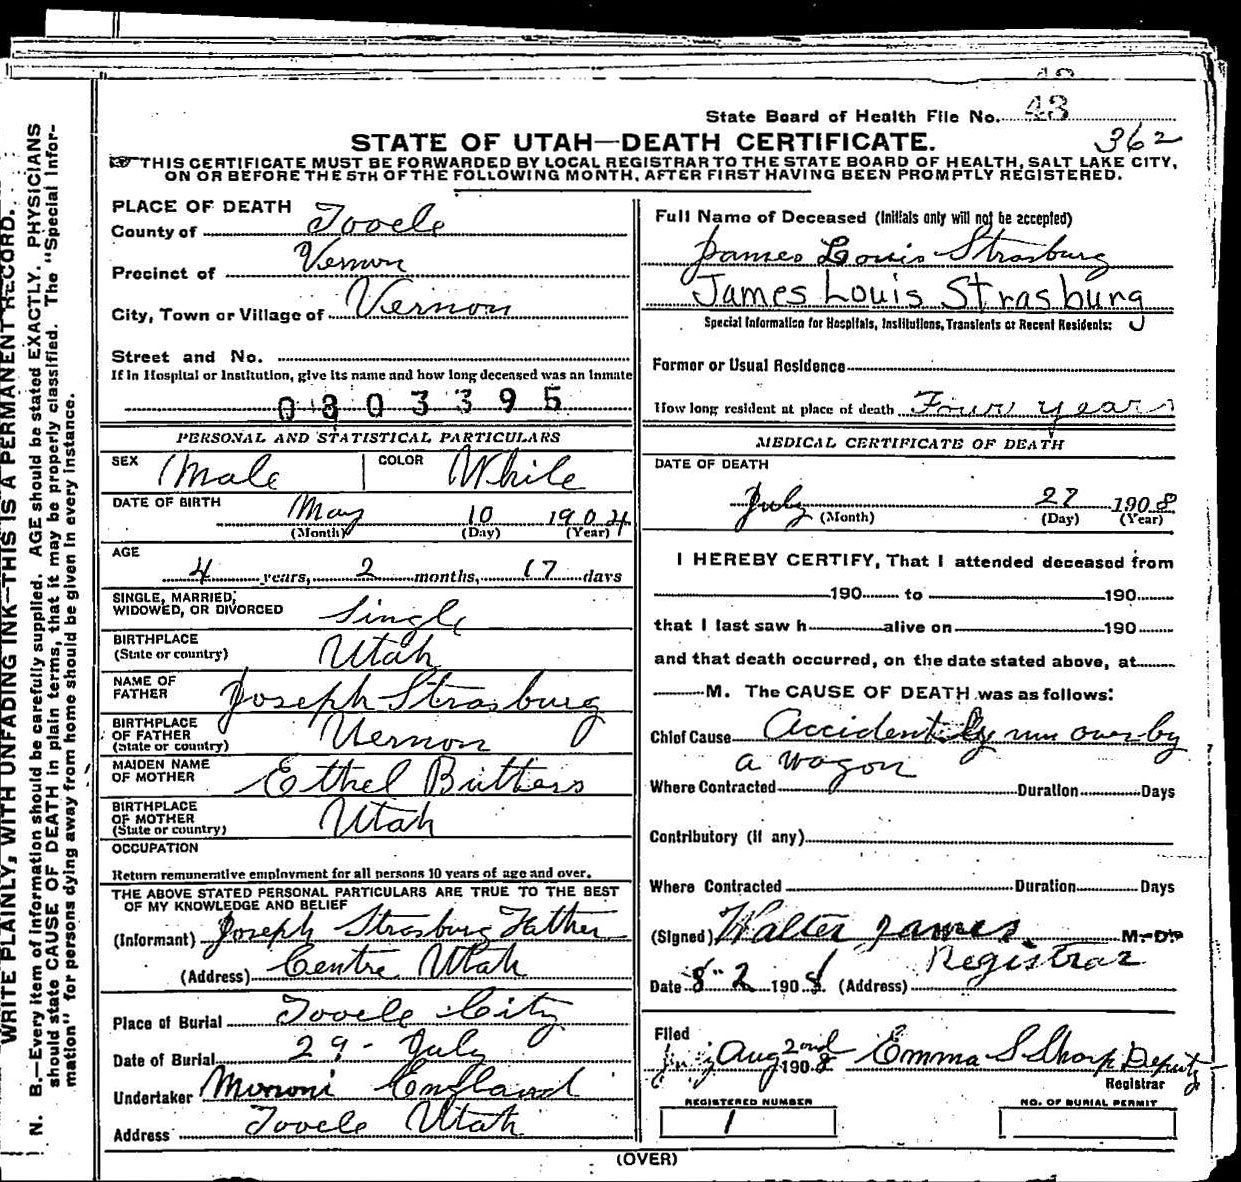 State Board of Health File No. 43
362
STATE OF UTAH—DEATH CERTIFICATE.
THIS CERTIFICATE MUST BE FORWARDED BY LOCAL REGISTRAR TO THE STATE BOARD OF HEALTH, SALT LAKE CITY,
ON OR BEFORE THE 5TH OF THE FOLLOWING MONTH, AFTER FIRST HAVING BEEN PROMPTLY REGISTERED.
WRITE PLAINLY, WITH UNFADING INK—THIS IS A PERMANENT RECORD.
N. B.—Every item of information should be carefully supplied. AGE should be stated EXACTLY. PHYSICIANS
should state CAUSE OF DEATH in plain terms, that it may be properly classified. The "Special Infor-
mation" for persons dying away from home should be given in every instance.
PLACE OF DEATH
County of Tooele
Precinct of Vernon
City, Town or Village of Vernon
Street and No.
If in Hospital or Institution, give its name and how long deceased was an inmate
0803395
PERSONAL AND STATISTICAL PARTICULARS
SEX Male COLOR White
DATE OF BIRTH May 10 1904
(Month) (Day) (Year)
AGE
4 years, 2 months, 17 days
SINGLE, MARRIED,
WIDOWED, OR DIVORCED Single
BIRTHPLACE
(State or country) Utah
NAME OF
FATHER Joseph Strasburg
BIRTHPLACE
OF FATHER
(State or country) Vernon
MAIDEN NAME
OF MOTHER Ethel Butters
BIRTHPLACE
OF MOTHER
(State or country) Utah
OCCUPATION
Return remunerative employment for all persons 10 years of age and over.
THE ABOVE STATED PERSONAL PARTICULARS ARE TRUE TO THE BEST
OF MY KNOWLEDGE AND BELIEF
(Informant) Joseph Strasburg Father
(Address) Centre Utah
Place of Burial Tooele City
Date of Burial 29 - July
Undertaker England
Address Tooele Utah
Full Name of Deceased (Initials only will not be accepted)
James Louis Strasburg
James Louis Strasburg
Special Information for Hospitals, Institutions, Transients or Recent Residents:
Former or Usual Residence
How long resident at place of death Four years
MEDICAL CERTIFICATE OF DEATH
DATE OF DEATH
July 27 1908
(Month) (Day) (Year)
I HEREBY CERTIFY, That I attended deceased from
190 to 190
that I last saw h alive on 190
and that death occurred, on the date stated above, at
M. The CAUSE OF DEATH was as follows:
Chief Cause Accidently run over by
a wagon
Where Contracted Duration Days
Contributory (if any)
Where Contracted Duration Days
(Signed) Walter James M-D
Registrar
Date 8-2 1908 (Address)
Filed
Aug 2nd 1908 Emma S Sharp Deputy
Registrar
REGISTERED NUMBER
1
NO. OF BURIAL PERMIT
(OVER)